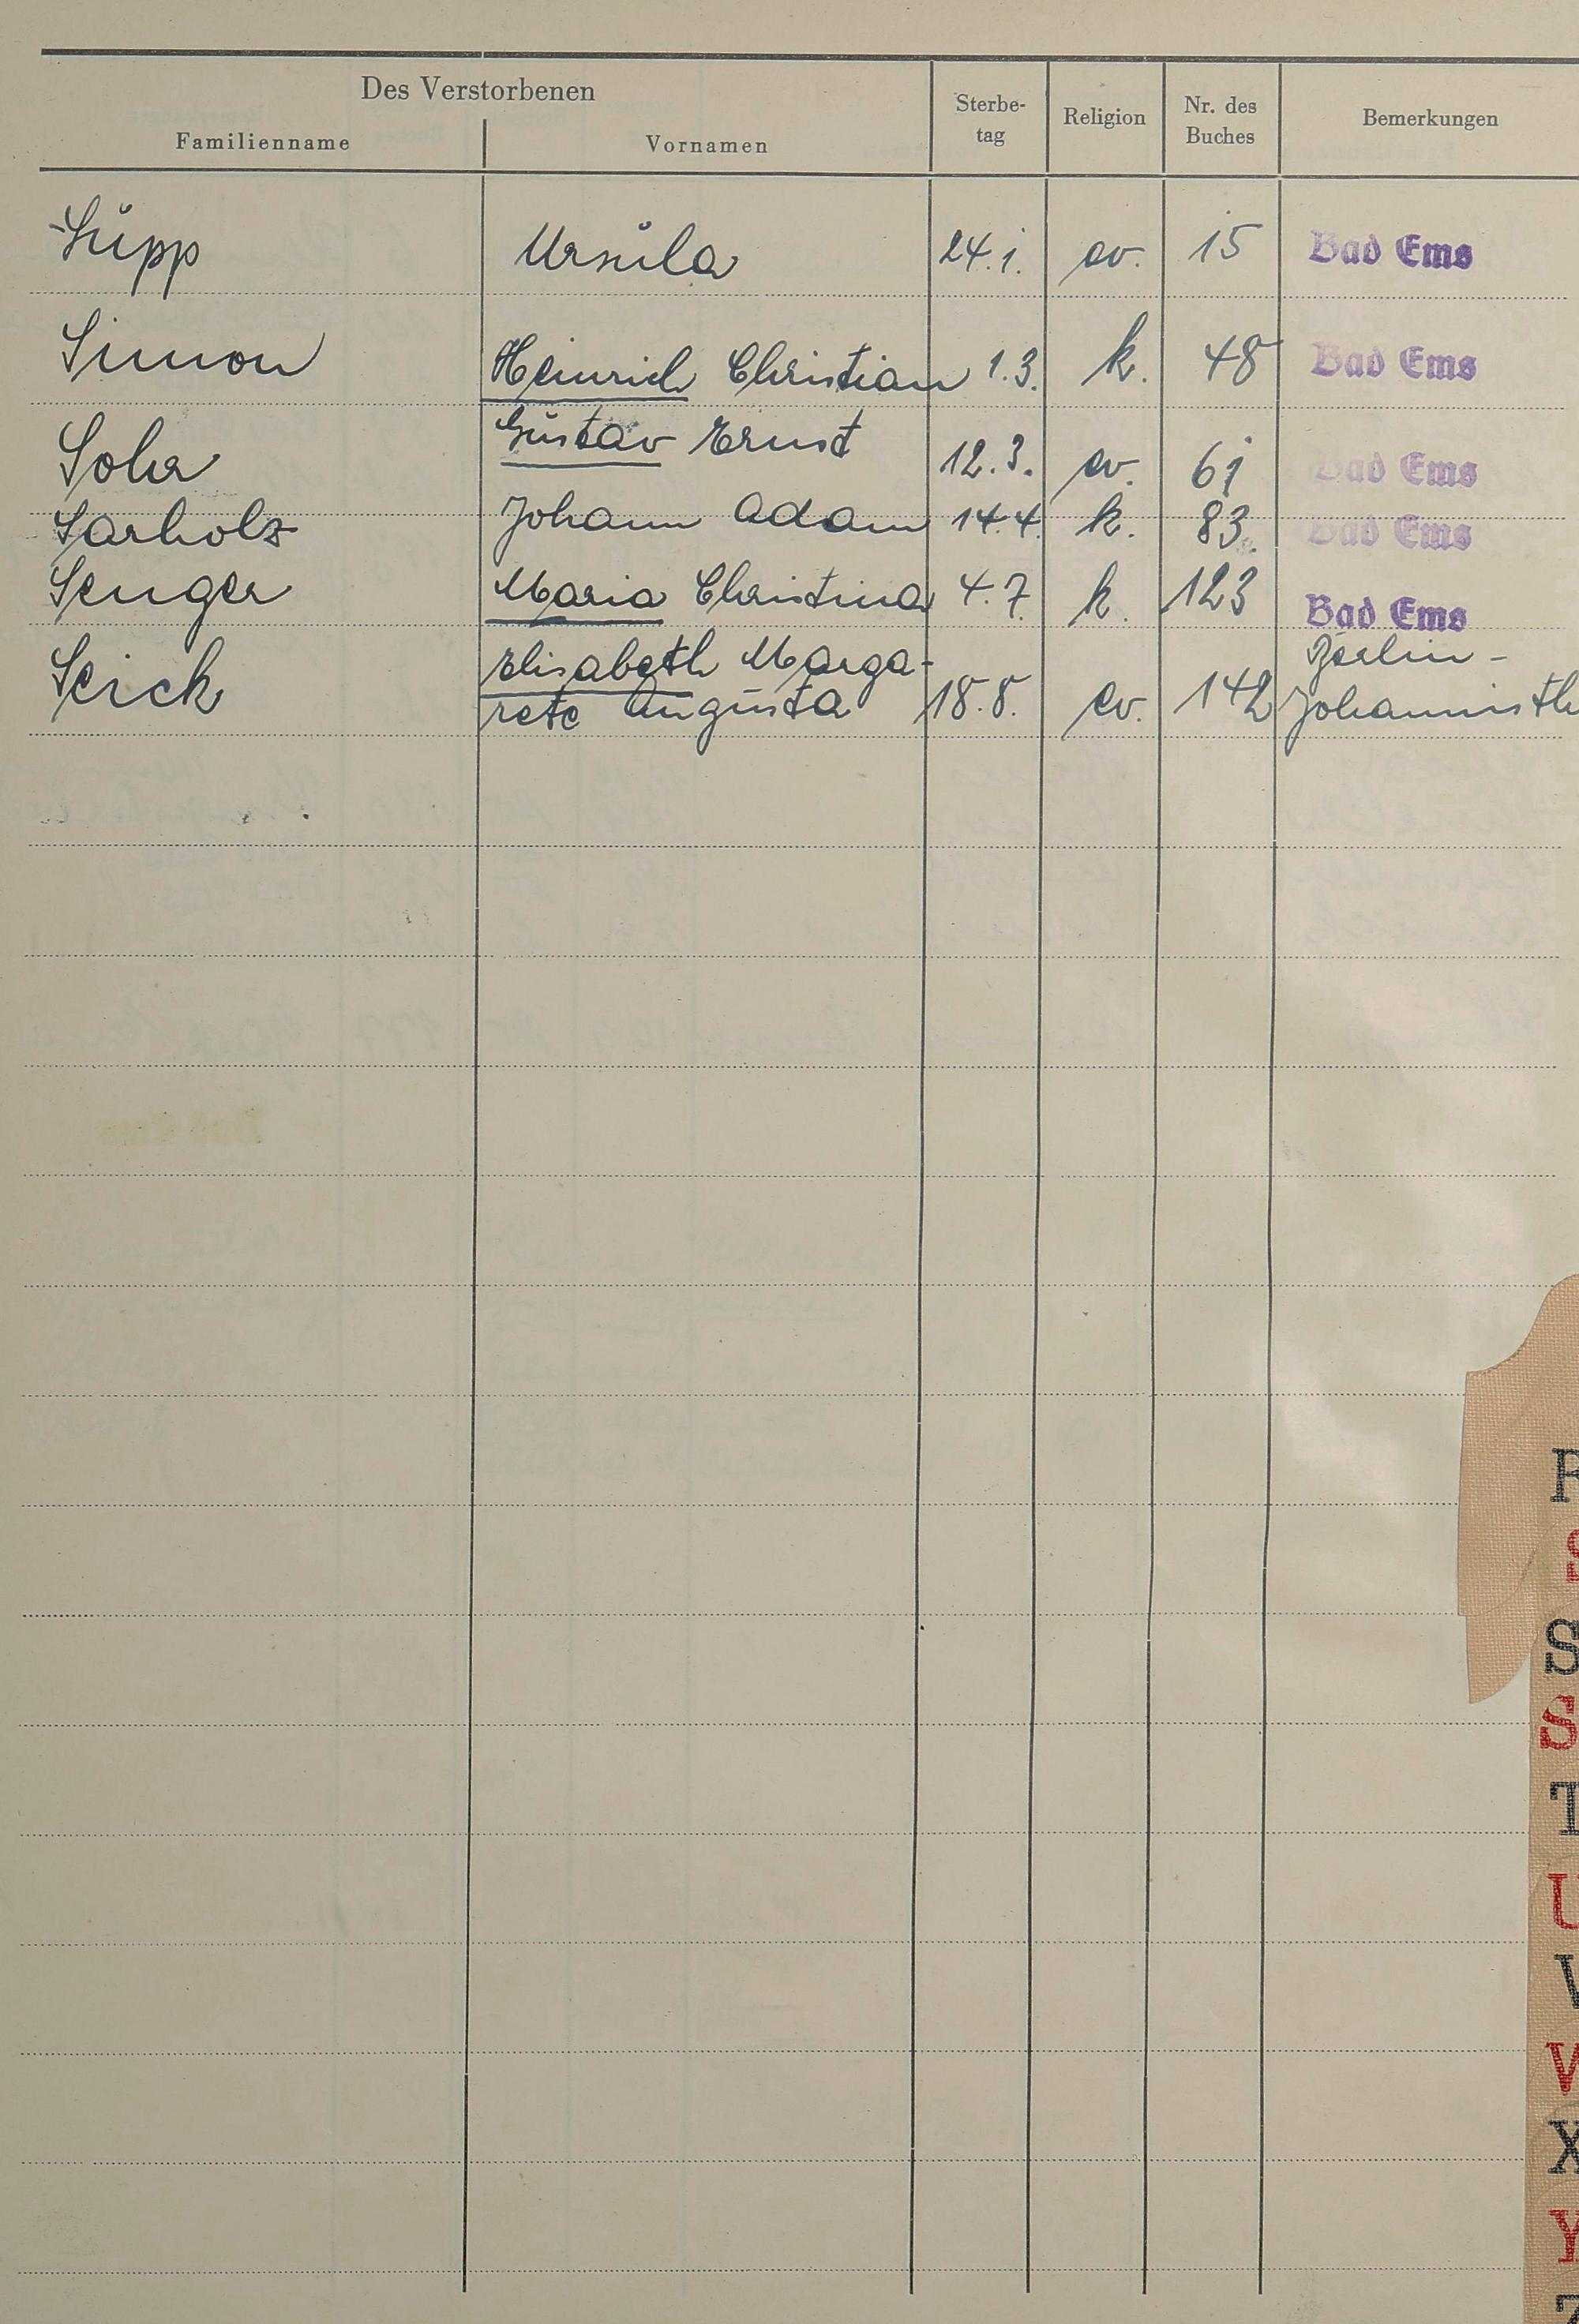 Des Verstorbenen
Familienname Vornamen Sterbe-tag Religion Nr. des Buches Bemerkungen
Supp Ursula 24.1. ev. 15 Bad Ems
Simon Heinrich Christian 1.3. k. 48 Bad Ems
Sohr Gustav Ernst 12.3. ev. 61 Bad Ems
Sarholz Johann Adam 14.4. k. 83. Bad Ems
Senger Maria Christina 4.7. k. 123 Bad Ems
Seick Elisabeth Marga-
rete Augusta 18.8. ev. 142 Berlin-
Johannisth
S
S
T
U
V
W
X
Y
Z